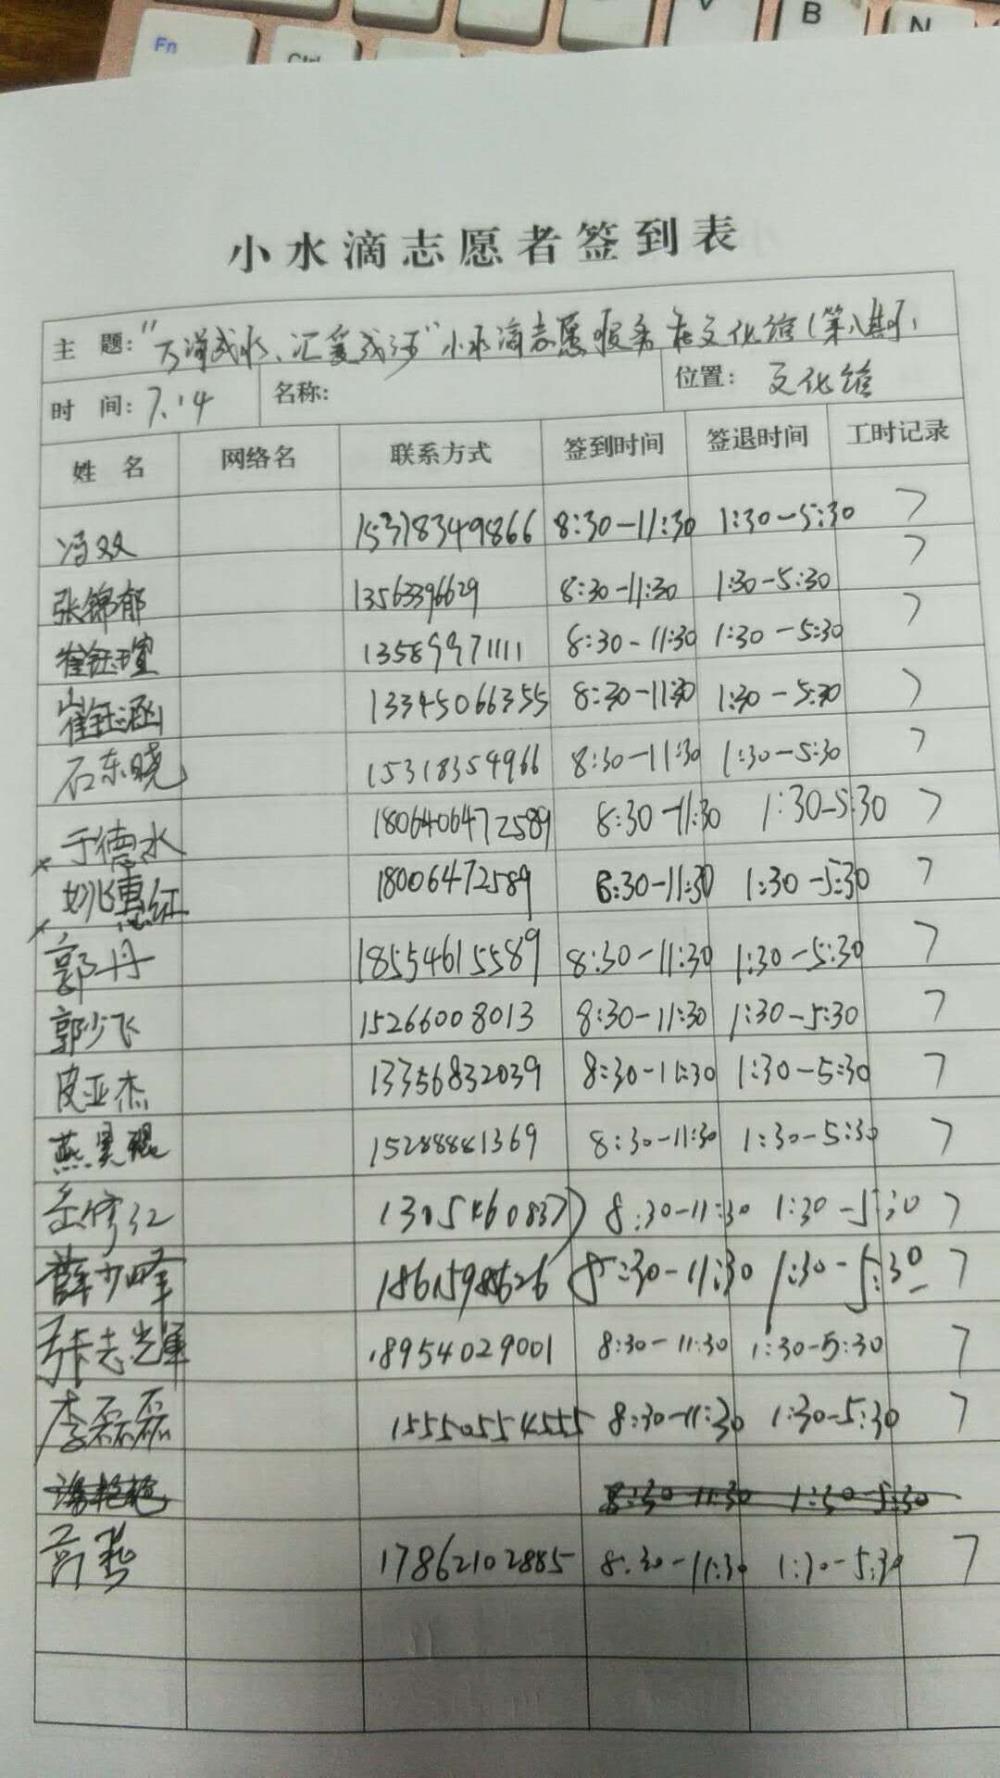 Fn
Ctrl
V
B
N
小水滴志愿者签到表
主 题: "万滴成水、汇爱成河"小水滴志愿服务在文化馆(第八期)
时 间: 7.14 名称: 位置: 文化馆
姓 名 网络名 联系方式 签到时间 签退时间 工时记录
冯双 15318349866 8:30-11:30 1:30-5:30 7
张锦郁 13563396629 8:30-11:30 1:30-5:30 7
崔钰瑄 13589971111 8:30-11:30 1:30-5:30 7
崔钰涵 13345066355 8:30-11:30 1:30-5:30 7
石东晓 15318354966 8:30-11:30 1:30-5:30 7
于德水 1806406472589 8:30-11:30 1:30-5:30 7
姚惠红 18006472589 8:30-11:30 1:30-5:30 7
郭丹 18554615589 8:30-11:30 1:30-5:30 7
郭少飞 15266008013 8:30-11:30 1:30-5:30 7
皮亚杰 13356832039 8:30-11:30 1:30-5:30 7
燕昊琨 15288881369 8:30-11:30 1:30-5:30 7
岳修江 13054608377 8:30-11:30 1:30-5:30 7
薛少峰 18615988626 8:30-11:30 1:30-5:30 7
张志光军 18954029001 8:30-11:30 1:30-5:30 7
李磊磊 15550554555 8:30-11:30 1:30-5:30 7
8:30-11:30 1:30-5:30
高 17862102885 8:30-11:30 1:30-5:30 7